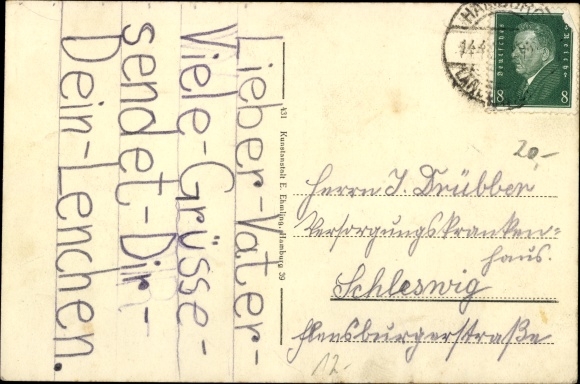 Lieber-Vater-
Viele-Grüsse-
sendet-Dir-
Dein-Lenchen.
431 Kunstanstalt E. Ehmling, Hamburg 39
HAMBURG
Deutsches Reich
8 8
20,-
Herrn J. Drübber
Versorgungskranken-
haus.
Schleswig
Flensburgerstraße
12.-